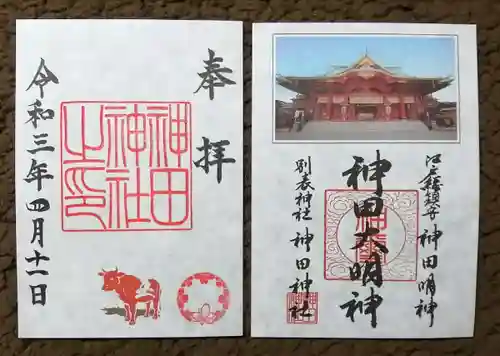 奉拝
神田神社之印
令和三年四月十一日
江戸総鎮守 神田明神
神田大明神
別表神社 神田神社